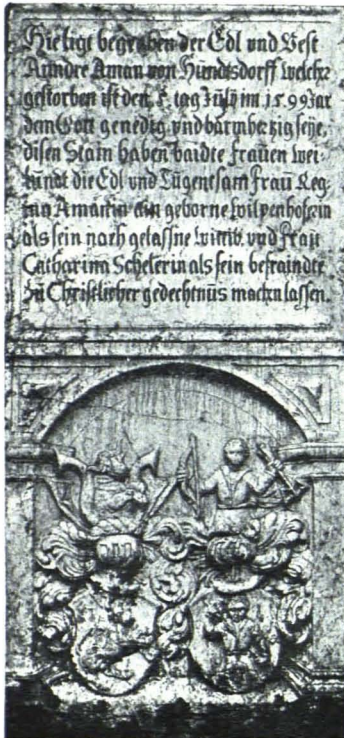 Hie ligt begraben der Edl und Vest
Anndre Aman von Hundtsdorff welcher
gestorben ist den 5. tag July im 1599 Jar
dem Gott genedig und barmhertzig seye,
disen Stain haben baidte frauen
die Edl und Tugentsam Frau Reg
ina Amanin ein geborne Wilpenhoferin
als sein nach gelassne wittib. und Frau
Catharina Schelerin als sein befraindte
zu Christlicher gedechtnus machn lassen.